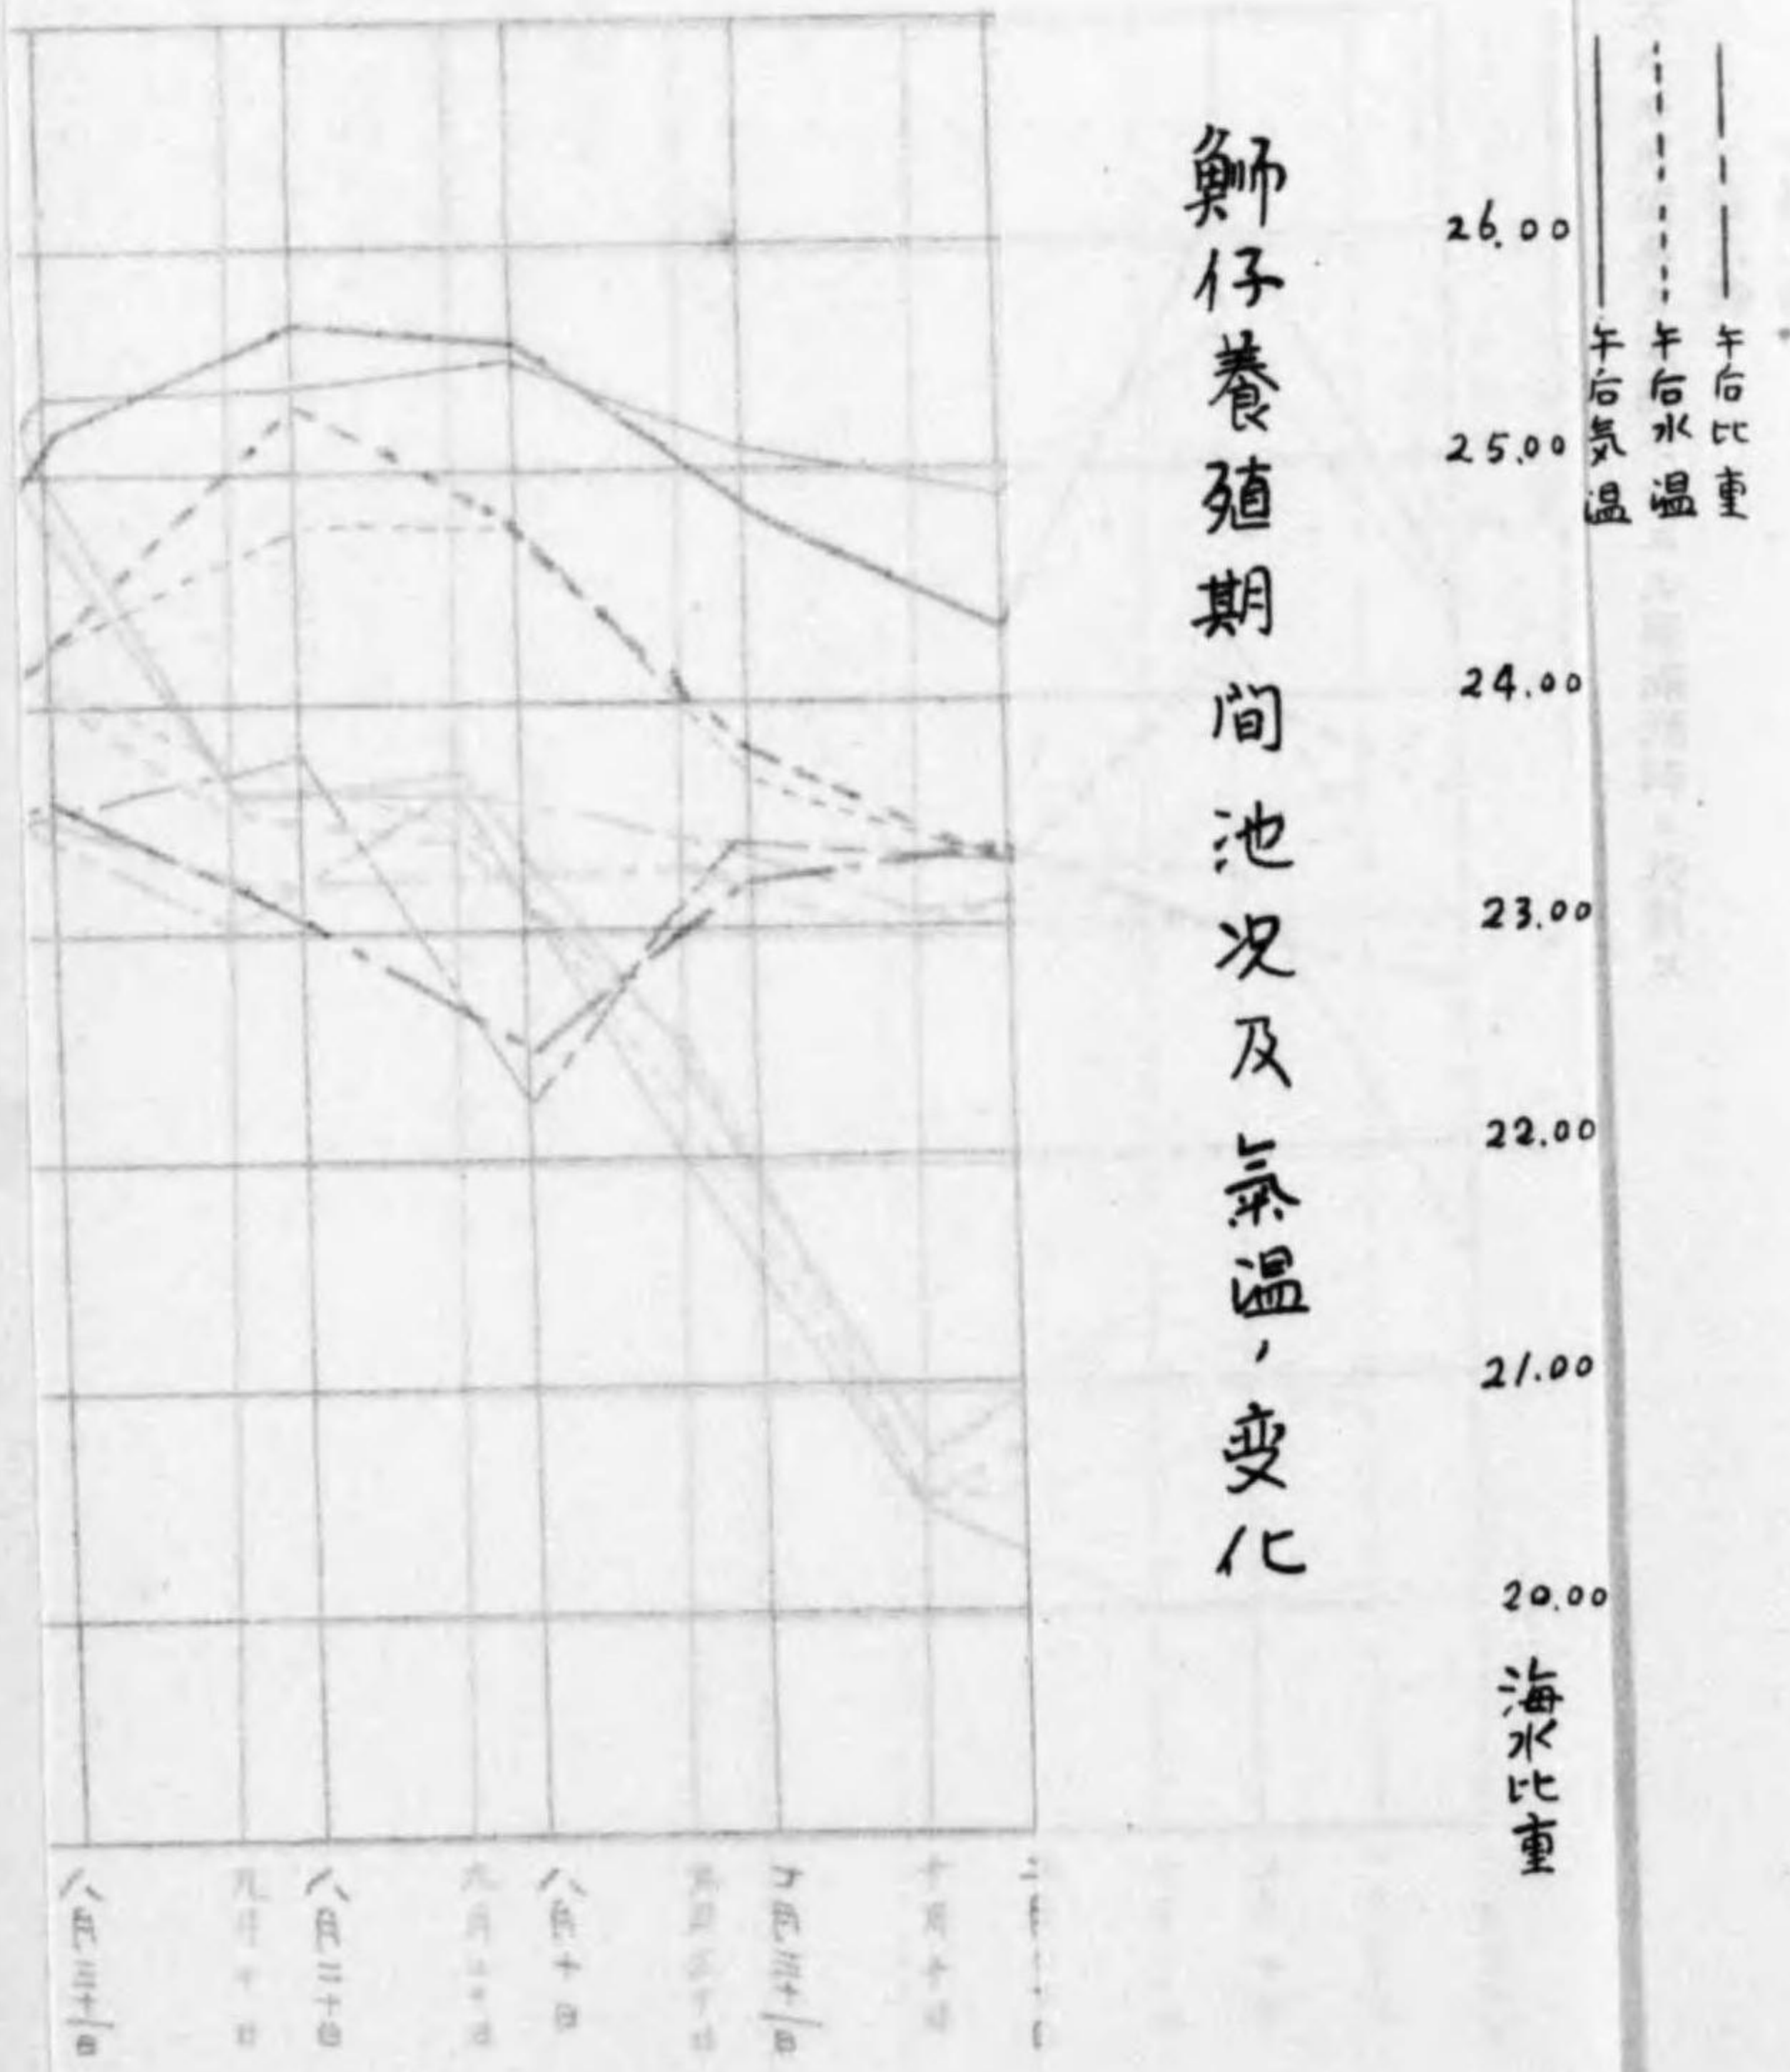 午后比重
午后水温
午后気温
26.00
25.00
24.00
23.00
22.00
21.00
20.00
海水比重
鰤仔養殖期間池况及氣温ノ変化
七月三十一日
八月十日
八月二十日
八月三十一日